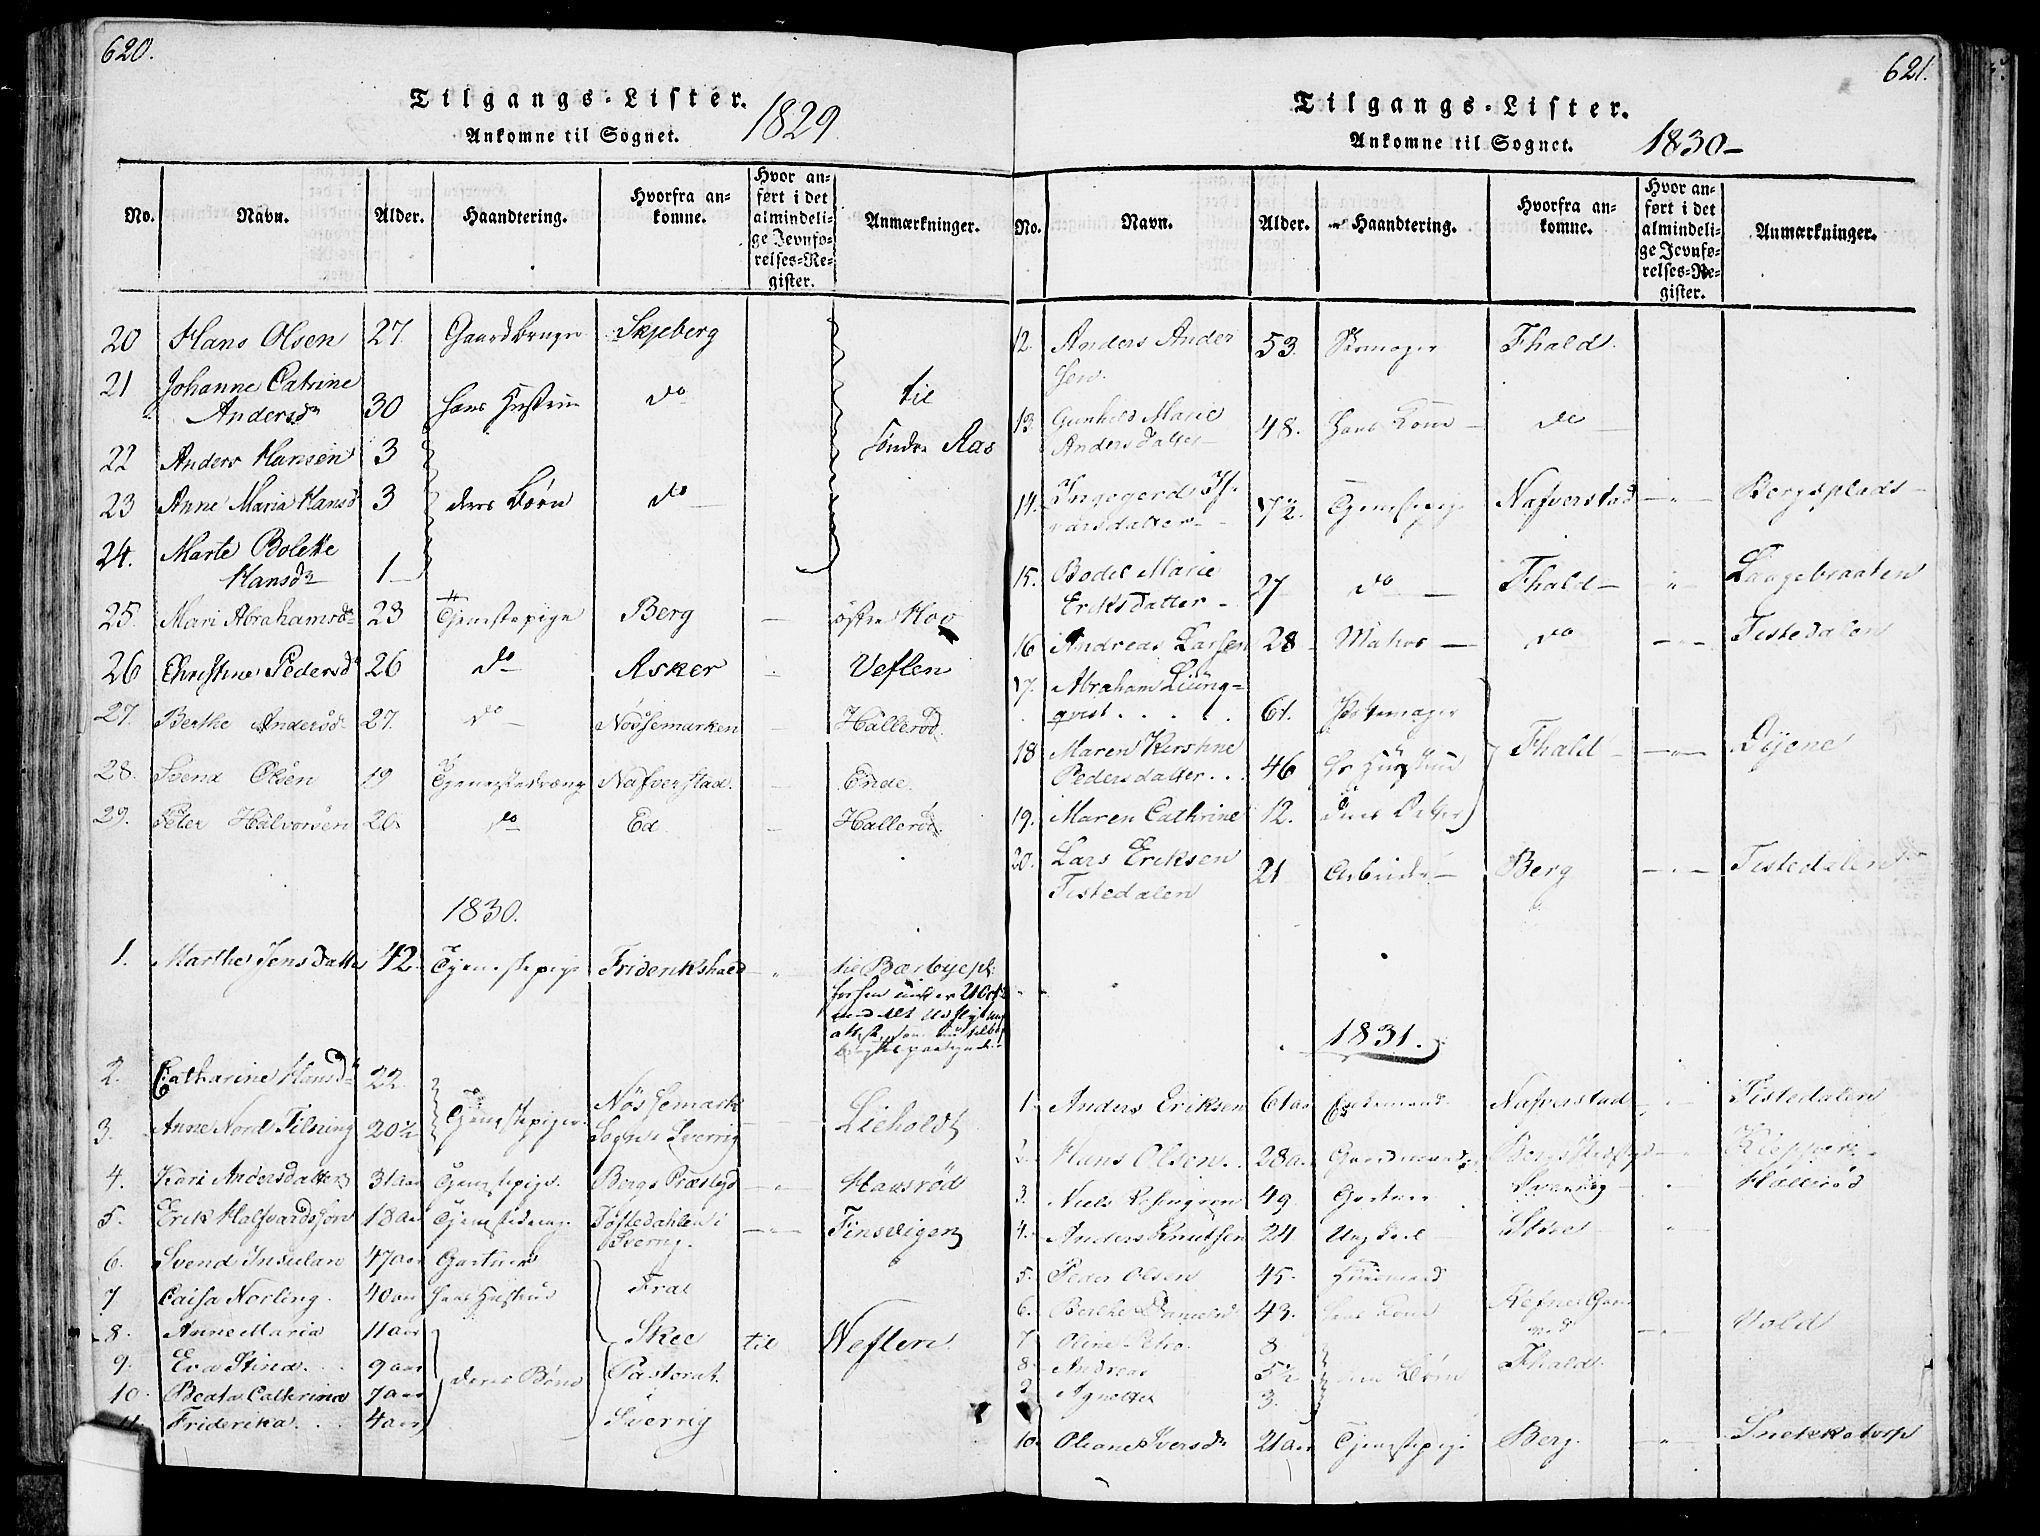 620.
Tilgangs-Lister.
Ankomne til Sognet. 1829
No. Navn. Alder. Haandtering. Hvorfra ankomne. Hvor anført i det almindelige Jevnførelses-Register. Anmærkninger.
20 Hans Olsen 27. Gaardbruger Skjeberg
21 Johanne Catrine
Andersd 30 hans Hustrue do til
22 Anders Hansen 3 Søndre Aas
23 Anne Maria Hansd 3 deres Børn do
24. Marte Bolette
Hansd 1
25. Mari Abrahamsd 23 Tjenestepige Berg østre Hov
26 Christine Pedersd 26 do Asker Veflen
27. Berthe Andersd 27. do Nössemarken Hallerød
28. Svend Olsen 19 Tjenestedreng Nafverstad. Ende.
29. Peter Halvorsen 20 do Ed Hallerød
1830.
1. Marthe Jens Datter 42. Tjenestepige Friderikshald " til Bærbye pl.
2. Catharine Hansd 22
3. Anne Nord Filning 20½ Tjenestepiger Nössemark
Sogn i Sverrig Lieholdt
4. Kari Andersdatter 31 aar Tjenestepige. Bergs Præstgd Hansrød
5. Erik Halfvardssön 18 aar Tjenestedreng Töstedahlen i
Sverrig. Finsviigen
6. Svend Insulan 47 aar Gartner
7 Caisa Norling. 40 aar hans Hustrue Fra
8. Anne Maria 11 aar Skee til Weflen
9. Eva Stina. 9 aar Pastorat
10. Beata Cathrina 7 aar deres Børn i
11 Friderika 4 aar Sverrig
621.
Tilgangs-Lister.
Ankomne til Sognet. 1830
No. Navn. Alder. Haandtering. Hvorfra ankomne. Hvor anført i det almindelige Jevnførelses-Register. Anmærkninger.
12. Anders Ander
sen 53. Skomager Fhald.
13. Gunhild Marie
Anders datter 48. hans Kone do
14. Ingegerd
datter 72. Tjenestepige Nafverstad " Bergsplads
15. Bodel Marie
Eriks datter 27 do Fhald " Langebraaten
16 Andreas Larsen 28 Matros do " Tistedalen
17. Abraham Liung=
qvist 61. Pottemager
18 Maren Kirstine
Pedersdatter 46 hs Hustrue Fhald " Byene
19. Maren Cathrine 12. deres Datter
20. Lars Eriksen 21 Arbeider Berg " Tistedalen
Tistedalen
1831.
1. Anders Eriksen 61 aar Enkemand. Nafverstad Tistedalen
2. Hans Olsen 28 aar Gaardmand
3. Niels 49 Gartner Hallerød
4. Anders Knutsen 24 Ung Karl
5. Peder Olsen 45. Huusmand
6. Berthe 43. hans Kone Vold
7 Oline Petro. 8
8. Andreas 5½ Børn Fhald.
9 Agnethe 3.
10. Oleane Iversd 21 aar Tjenestepige Berg. " Snekkotorp